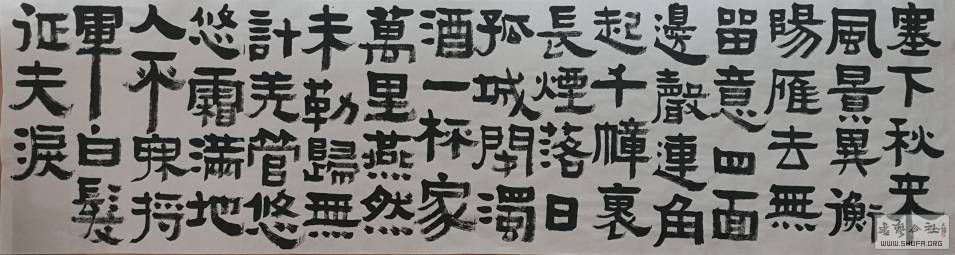 塞下秋来
風景異衡
陽雁去無
留意四面
邊聲連角
起千幛裏
長煙落日
孤城閉濁
酒一杯家
萬里燕然
未勒歸無
計羌管悠
悠霜滿地
人不寐将
軍白髮
征夫淚
公社
WWW.SHUFA.ORG